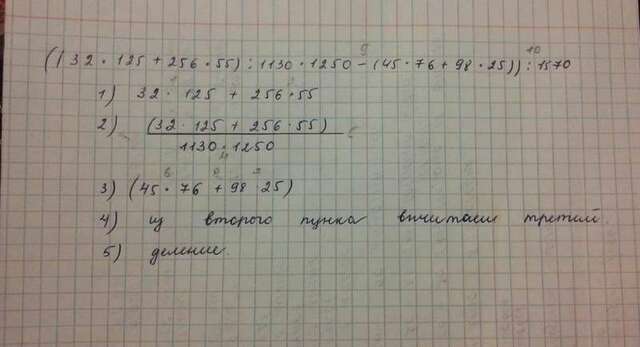 ((32 · 125 + 256 · 55) : 1130 · 1250 - (45 · 76 + 98 · 25)) : 1570
1) 32 · 125 + 256 · 55
2) (32 · 125 + 256 · 55)
1130 · 1250
3) (45 · 76 + 98 · 25)
4) из второго пунка вычитаем третий.
5) деление.